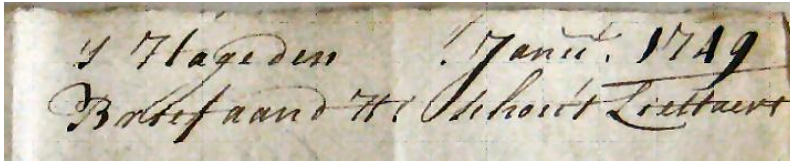 's Hage den 1 Januũ. 1749
Brief aan d Hr Schout Liettaert